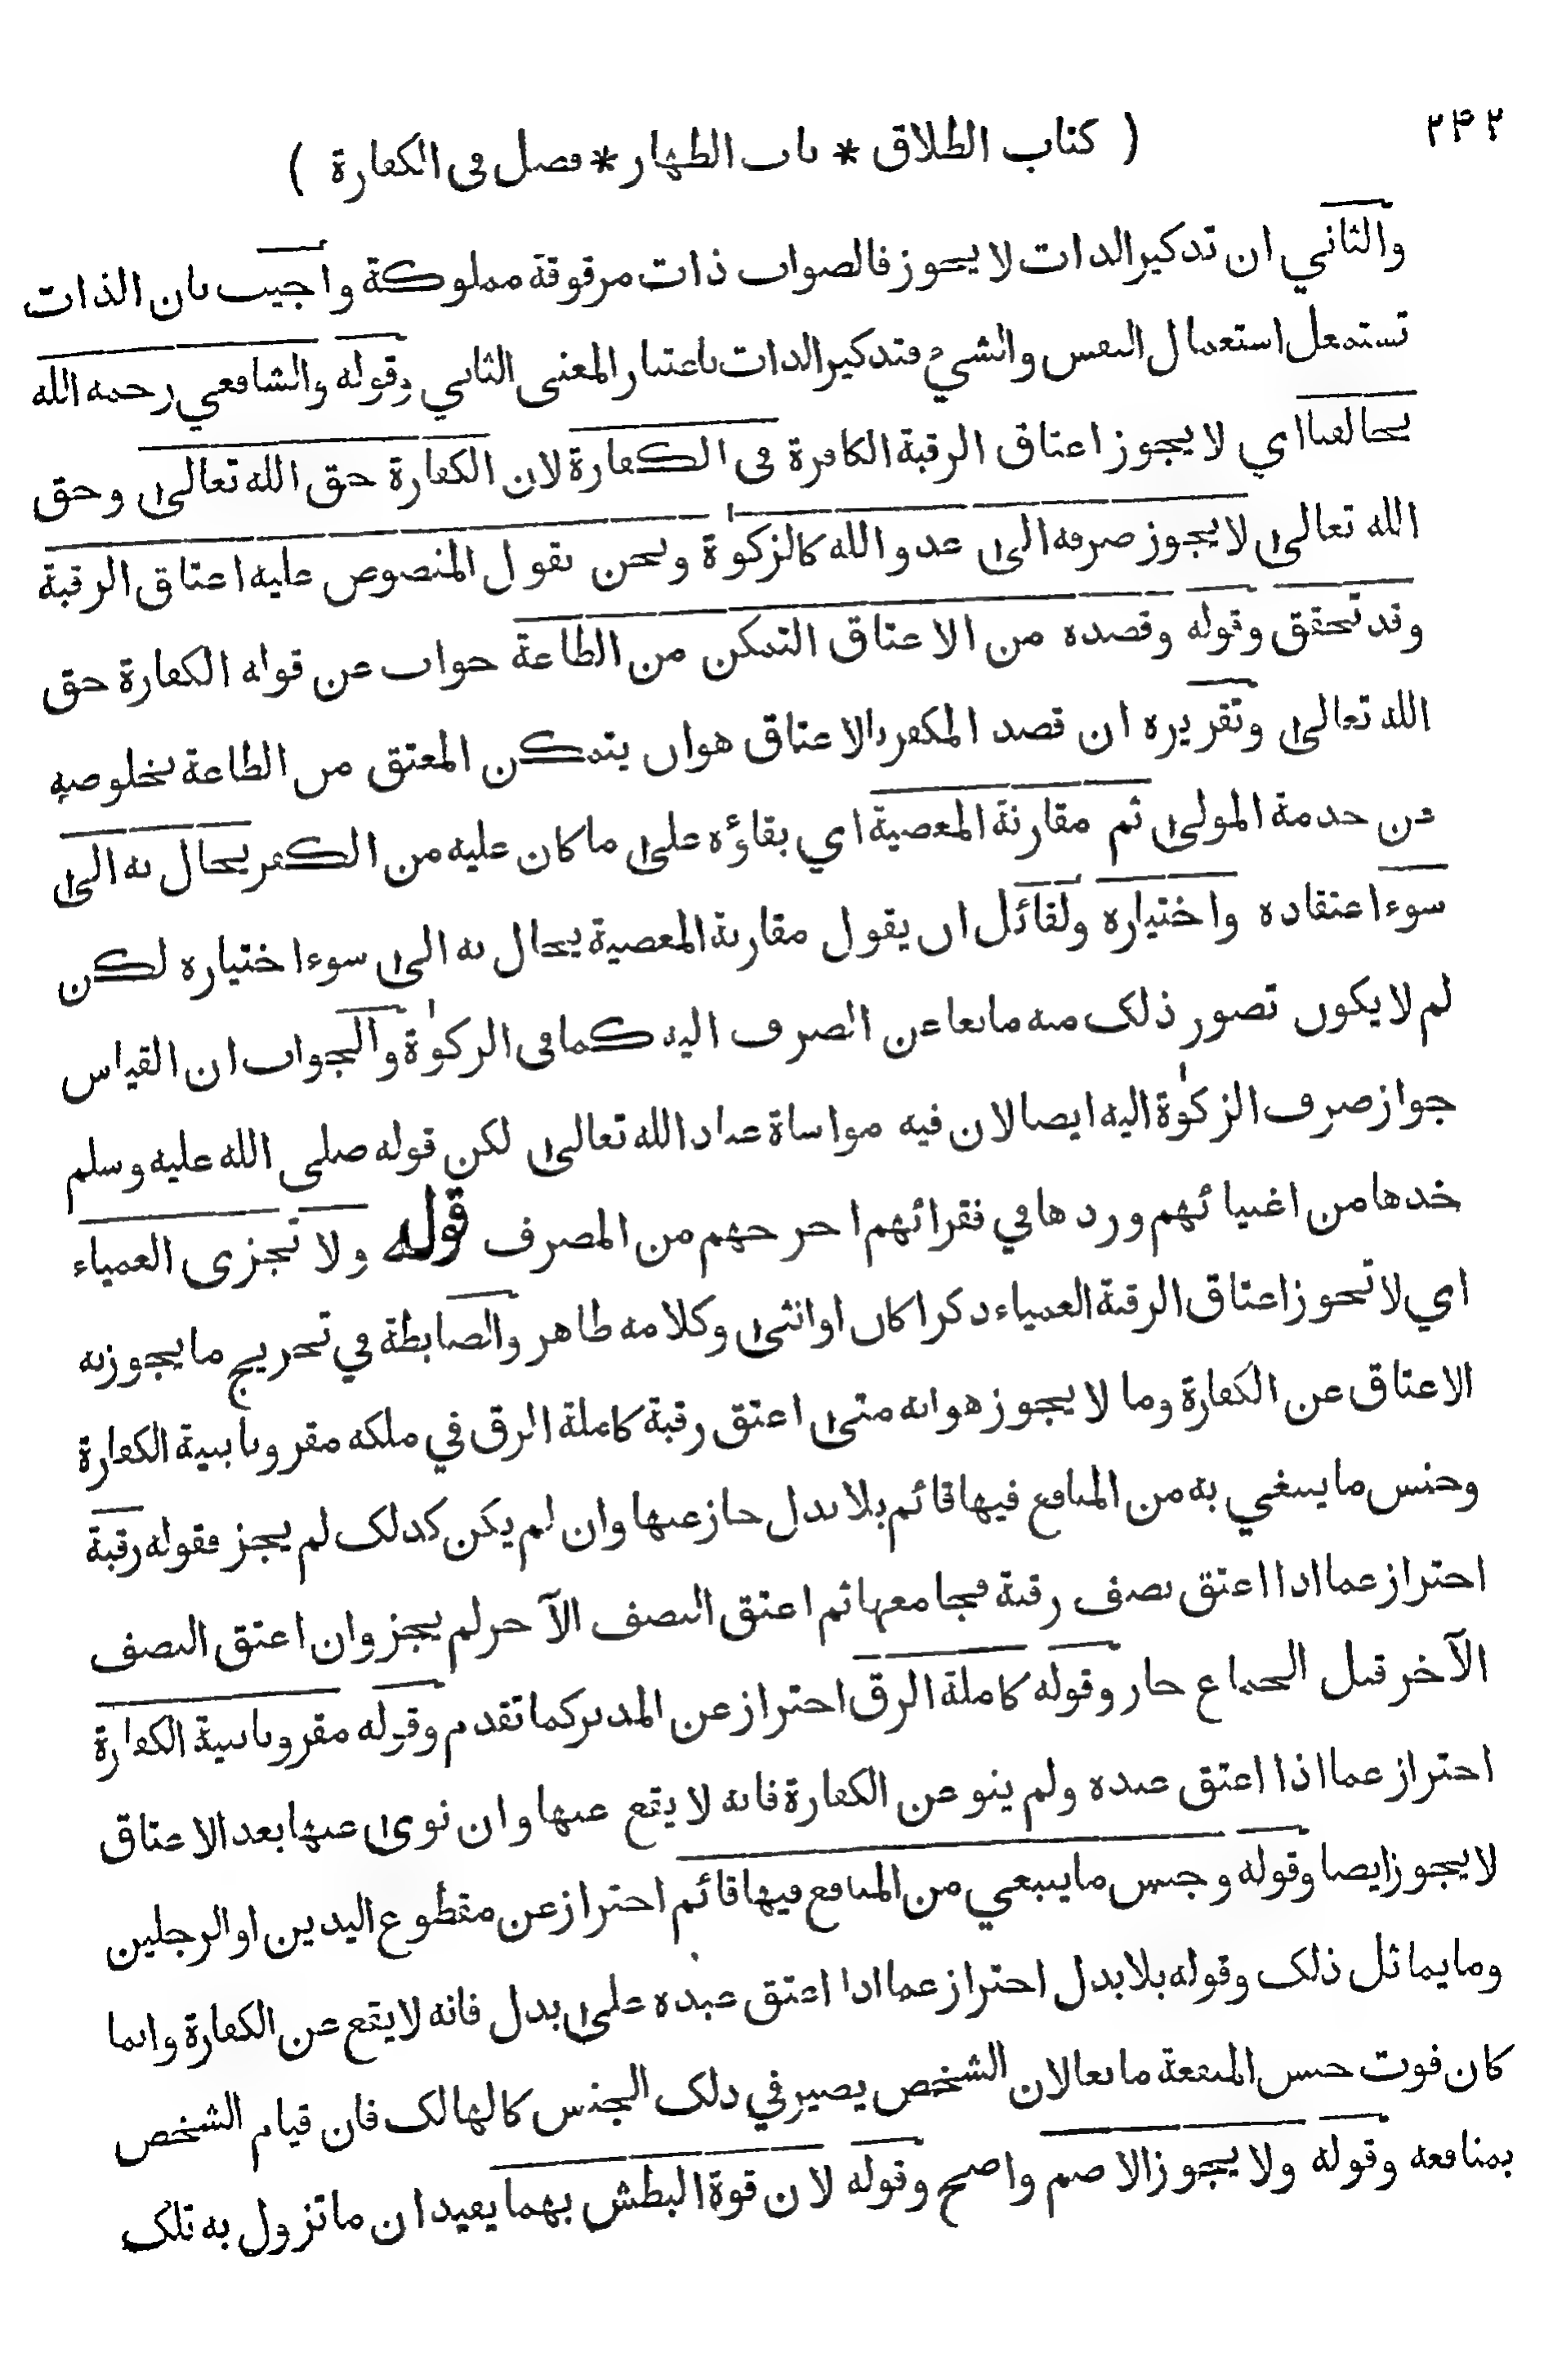 ۲۴۲
( كتاب الطلاق * باب الظهار * فصل في الكفارة )
والثاني ان تذكير الذات لا يجوز فالصواب ذات مرقوقة مملوكة واجيب بان الذات
تستعمل استعمال النفس والشيء فتذكير الذات باعتبار المعنى الثاني وقوله والشافعي رحمه الله
يخالفنا اي لا يجوز اعتاق الرقبة الكافرة في الكفارة لان الكفارة حق الله تعالى وحق
الله تعالى لا يجوز صرفه الى عدو الله كالزكوة ونحن نقول المنصوص عليه اعتاق الرقبة
وقد تحقق وقوله وقصده من الاعتاق التمكن من الطاعة جواب عن قوله الكفارة حق
الله تعالى وتقريره ان قصد المكفر بالاعتاق هو ان يتمكن المعتق من الطاعة بخلوصه
عن خدمة المولى ثم مقارنة المعصية اي بقاؤه على ما كان عليه من الكفر يحال به الى
سوء اعتقاده واختياره ولقائل ان يقول مقارنة المعصية يحال به الى سوء اختياره لكن
لم لا يكون تصور ذلك منه مانعا عن الصرف اليه كما في الزكوة والجواب ان القياس
جواز صرف الزكوة اليه ايضا لان فيه مواساة عباد الله تعالى لكن قوله صلى الله عليه وسلم
خذها من اغنيائهم وردها في فقرائهم اخرجهم من المصرف قوله ولا تجزى العمياء
اي لا تجوز اعتاق الرقبة العمياء ذكرا كان او انثى وكلامه ظاهر والضابطة في تخريج ما يجوز به
الاعتاق عن الكفارة وما لا يجوز هو انه متى اعتق رقبة كاملة الرق في ملكه مقرونا بنية الكفارة
وجنس ما يبتغي به من المنافع فيها قائم بلا بدل جاز عنها وان لم يكن كذلك لم يجز فقوله رقبة
احتراز عما اذا اعتق نصف رقبة فجامعها ثم اعتق النصف الآخر لم يجز وان اعتق النصف
الآخر قبل الجماع جاز وقوله كاملة الرق احتراز عن المدبر كما تقدم وقوله مقرونا بنية الكفارة
احتراز عما اذا اعتق عبده ولم ينو عن الكفارة فانه لا يقع عنها وان نوى عنها بعد الاعتاق
لا يجوز ايضا وقوله وجنس ما يبتغي من المنافع فيها قائم احتراز عن مقطوع اليدين او الرجلين
وما يماثل ذلك وقوله بلا بدل احتراز عما اذا اعتق عبده على بدل فانه لا يقع عن الكفارة وانما
كان فوت جنس المنفعة مانعا لان الشخص يصير في ذلك الجنس كالهالك فان قيام الشخص
بمنافعه وقوله ولا يجوز الاصم واضح وقوله لان قوة البطش بهما يفيد ان ما تزول به تلك